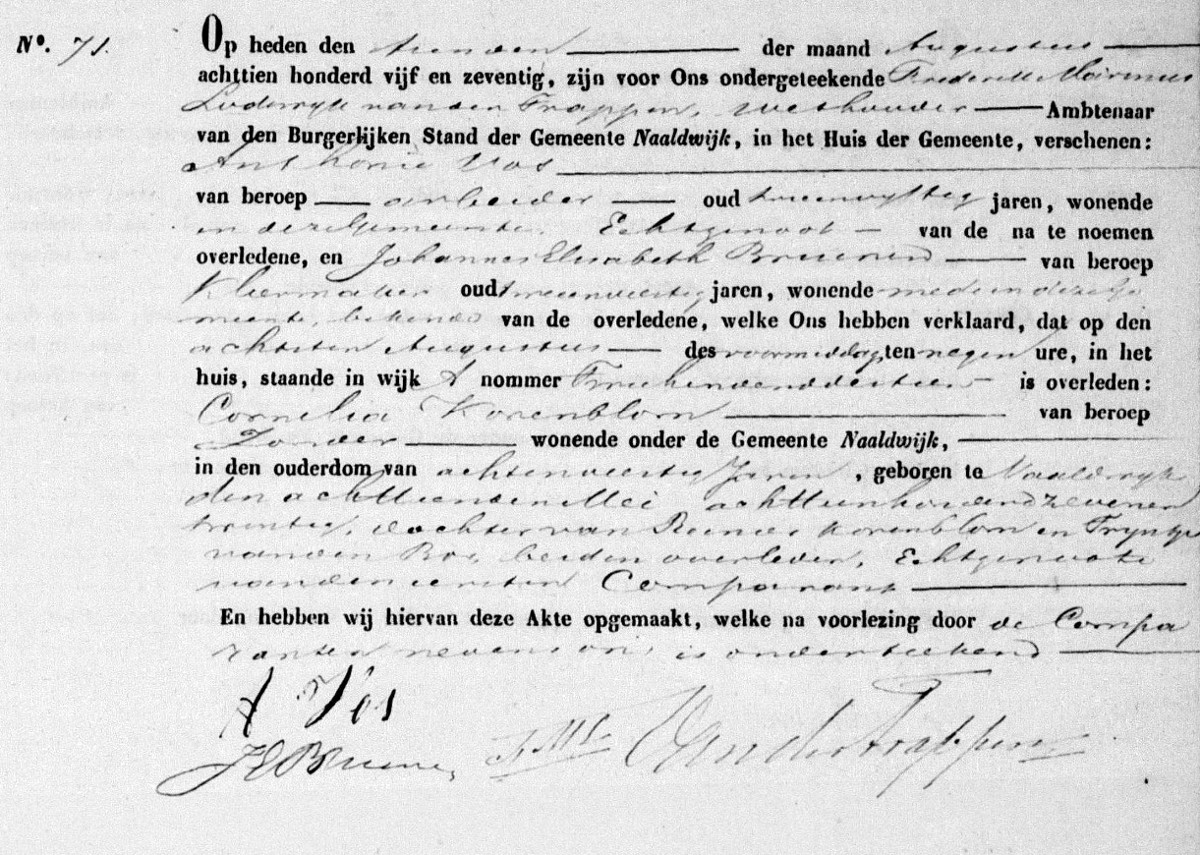 No. 71.
Op heden den tienden der maand Augustus
achttien honderd vijf en zeventig, zijn voor Ons ondergeteekende Frederik Marinus
Lodewijk van der Trappen, Wethouder Ambtenaar
van den Burgerlijken Stand der Gemeente Naaldwijk, in het Huis der Gemeente, verschenen:
Anthonie Vos
van beroep arbeider oud jaren, wonende
in deze Gemeente, Echtgenoot van de na te noemen
overledene, en Johannes Elisabeth van beroep
Kleermaker oud tweenveertig jaren, wonende mede in deze Ge
meente, bekende van de overledene, welke Ons hebben verklaard, dat op den
achtsten Augustus des voormiddag ten negen ure, in het
huis, staande in wijk A nommer is overleden:
Cornelia Korenblom van beroep
Zonder wonende onder de Gemeente Naaldwijk,
in den ouderdom van achtenveertig Jaren, geboren te Naaldwijk
den achttienden Mei achttienhonderdzevenen
twintig, dochter van Korenblom en Tryntje
van den Bos, beiden overleden, Echtgenoote
van den eersten Comparant
En hebben wij hiervan deze Akte opgemaakt, welke na voorlezing door de Compa
ranten nevens ons is onderteekend
A Vos
JE Bruene
F.M.L. Van der Trappen